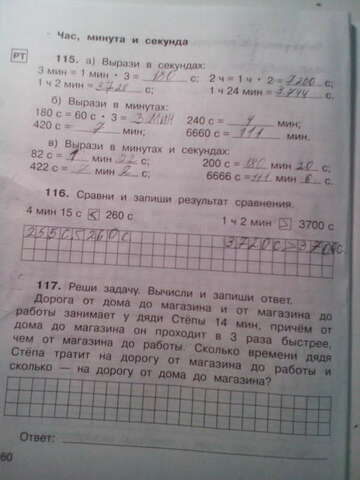 Час, минута и секунда
РТ
115. а) Вырази в секундах:
3 мин = 1 мин · 3 = 180 с; 2 ч = 1 ч · 2 = 7200 с;
1 ч 2 мин = 3720 с; 1 ч 24 мин = с.
б) Вырази в минутах:
180 с = 60 с · 3 = 3 мин 240 с = мин;
420 с = 7 мин; 6660 с = 111 мин.
в) Вырази в минутах и секундах:
82 с = 1 мин 22 с; 200 с = 180 мин 20 с;
422 с = 7 мин 2 с; 6666 с = 111 мин 6 с.
116. Сравни и запиши результат сравнения.
4 мин 15 с < 260 с. 1 ч 2 мин > 3700 с
255с<260с 3720с>370с
117. Реши задачу. Вычисли и запиши ответ.
Дорога от дома до магазина и от магазина до
работы занимает у дяди Стёпы 14 мин, причём от
дома до магазина он проходит в 3 раза быстрее,
чем от магазина до работы. Сколько времени дядя
Стёпа тратит на дорогу от магазина до работы и
сколько — на дорогу от дома до магазина?
Ответ:
60